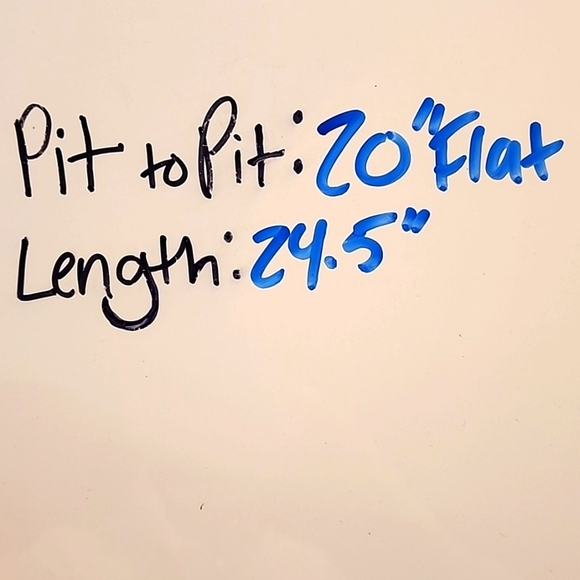 Pit to Pit: 20" Flat
Length: 24.5"